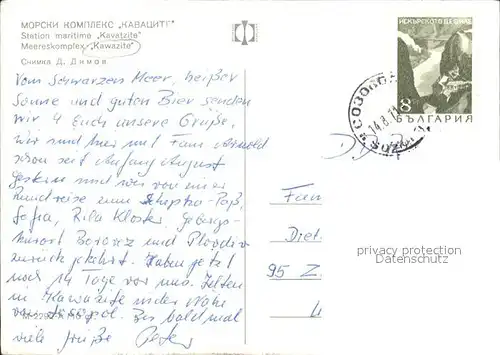 МОРСКИ КОМПЛЕКС „КАВАЦИТЕ"
Station maritime „Kavatzite"
Meereskomplex „Kawazite"
Снимка Д. Димов
ИСКЪРСКОТО ДЕФИЛЕ
8
БЪЛГАРИЯ
СОЗОПОЛ
14.8.71
SOZOPOL
Vom Schwarzen Meer, heißer
Sonne und guten Bier senden
wir 4 Euch unsere Grüße.
Wir sind hier mit Fam Arnold
schon seit Anfang August
Gestern sind wir von einer
Rundreise zum Schipka-Paß,
Sofia, Rila Kloster, Gebirgs-
kurort Borovez und Plovdiv
zurück gekehrt. Haben jetzt
noch 14 Tage vor uns. Zelten
in Kawazite in der Nähe
von Sozopol. Bis bald mal
viele Grüße Peter
DDR
Fam
Diet
95 Z
privacy protection
Datenschutz